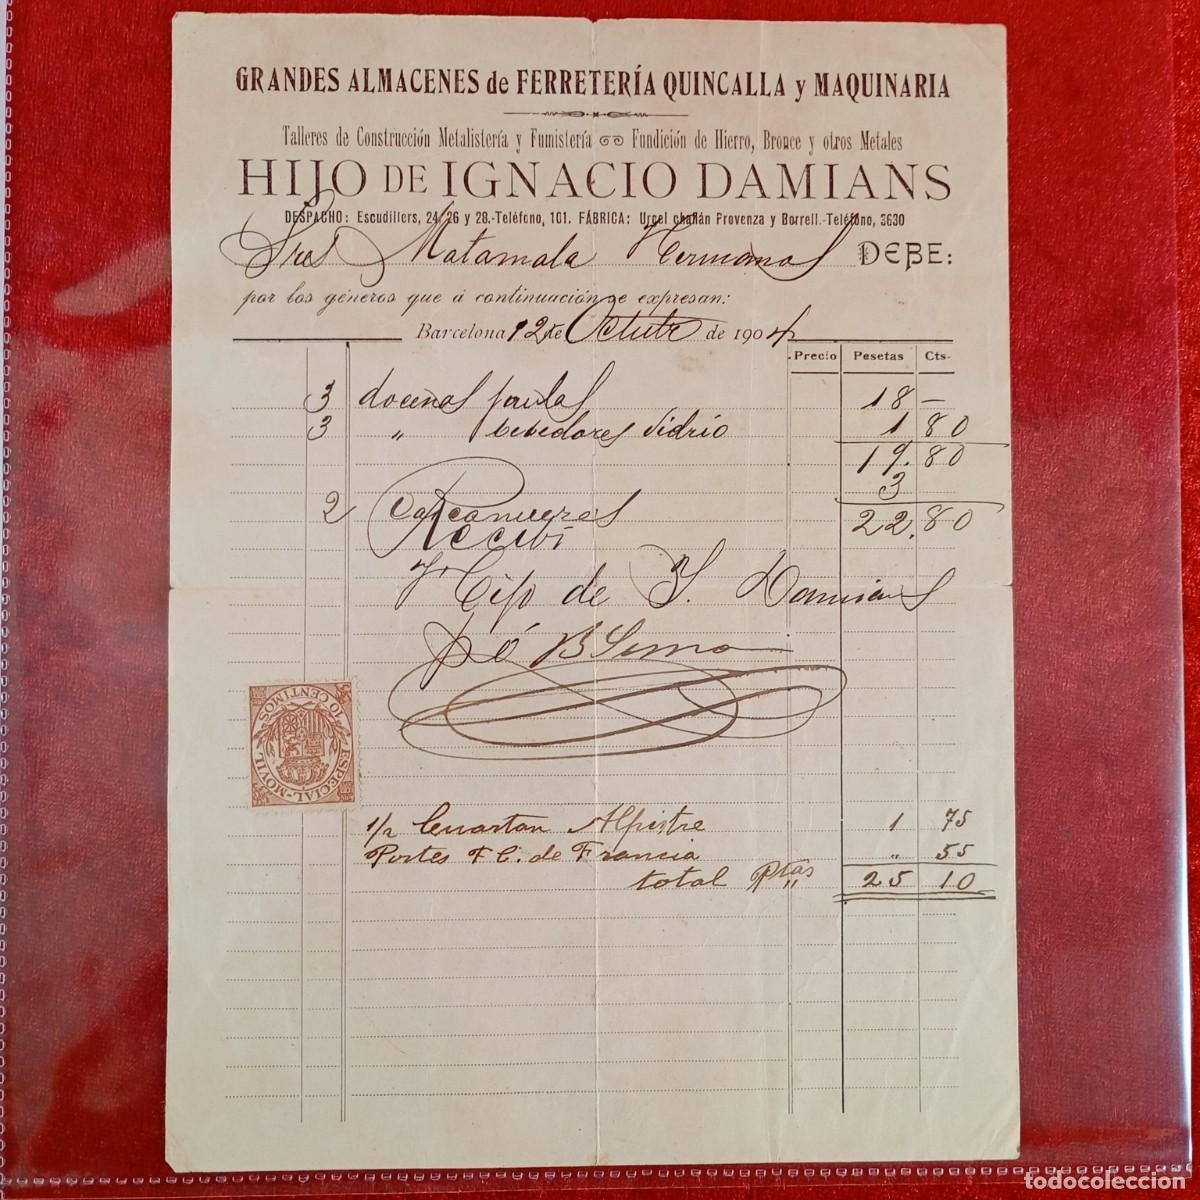 GRANDES ALMACENES de FERRETERÍA QUINCALLA y MAQUINARIA
Talleres de Construcción Metalistería y Fumistería Fundición de Hierro, Bronce y otros Metales
HIJO DE IGNACIO DAMIANS
DESPACHO: Escudillers, 24, 26 y 28.-Teléfono, 101. FÁBRICA: Urgel chaflán Provenza y Borrell.-Teléfono, 3630
Sres Matamala Hermanos DEBE:
por los géneros que á continuación se expresan:
Barcelona 12 de Octubre de 1904
Precio Pesetas Cts.
3 docenas 18 -
3 " bebedores vidrio 1 80
19.80
3
2 22.80
Recibi
Hijo de I. Damians
pó
10 CENTIMOS
ESPECIAL-MOVIL
1/2 Cuartan Alpistre 1 75
Portes F.C. de Francia " 55
total Ptas 25 10
todocoleccion